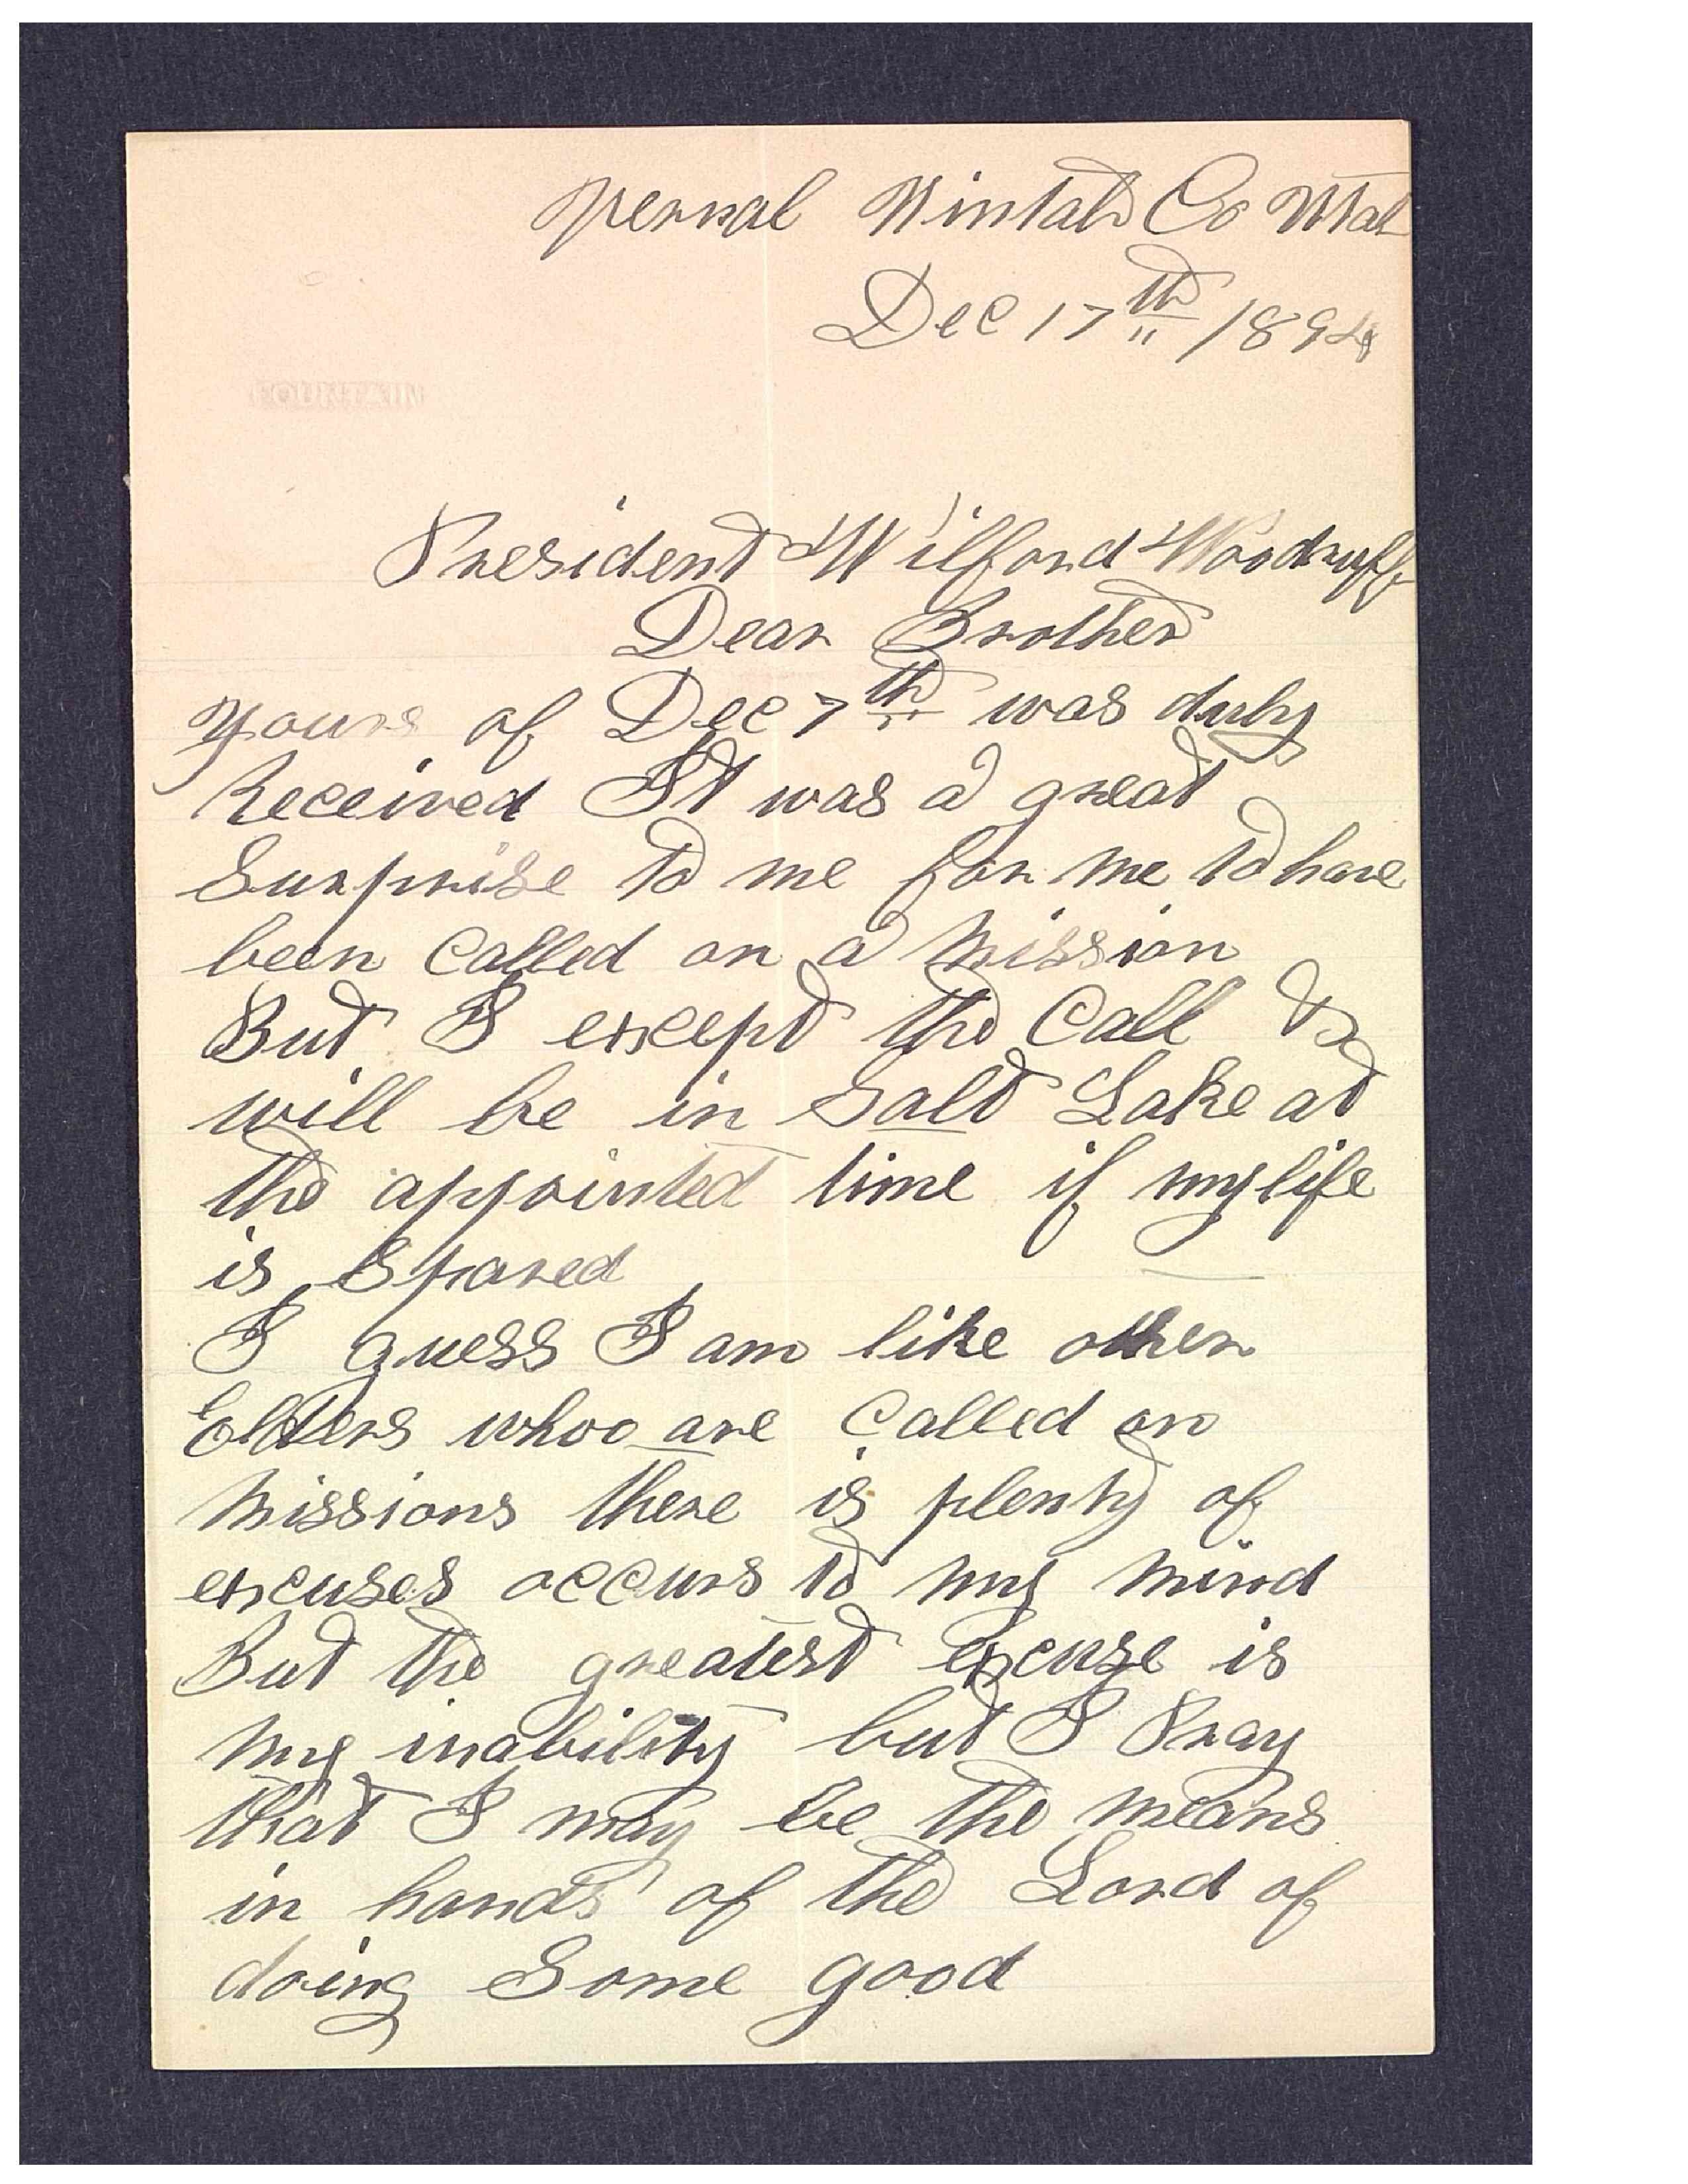 Vernal Uintah Co Utah
Dec 17th 1894
FOUNTAIN
President Wilford Woodruff
Dear Brother
Yours of Dec 7th was duly
Received It was a great
Surprise to me for me to have
been Called on a Mission
But I except the Call &
will be in Salt Lake at
the appointed time if my life
is Spared
I guess I am like other
Elders whoo are Called on
Missions there is plenty of
excuses occurs to my mind
But the greatest excuse is
my inability but I Pray
that I may be the means
in hands of the Lord of
doing Some good